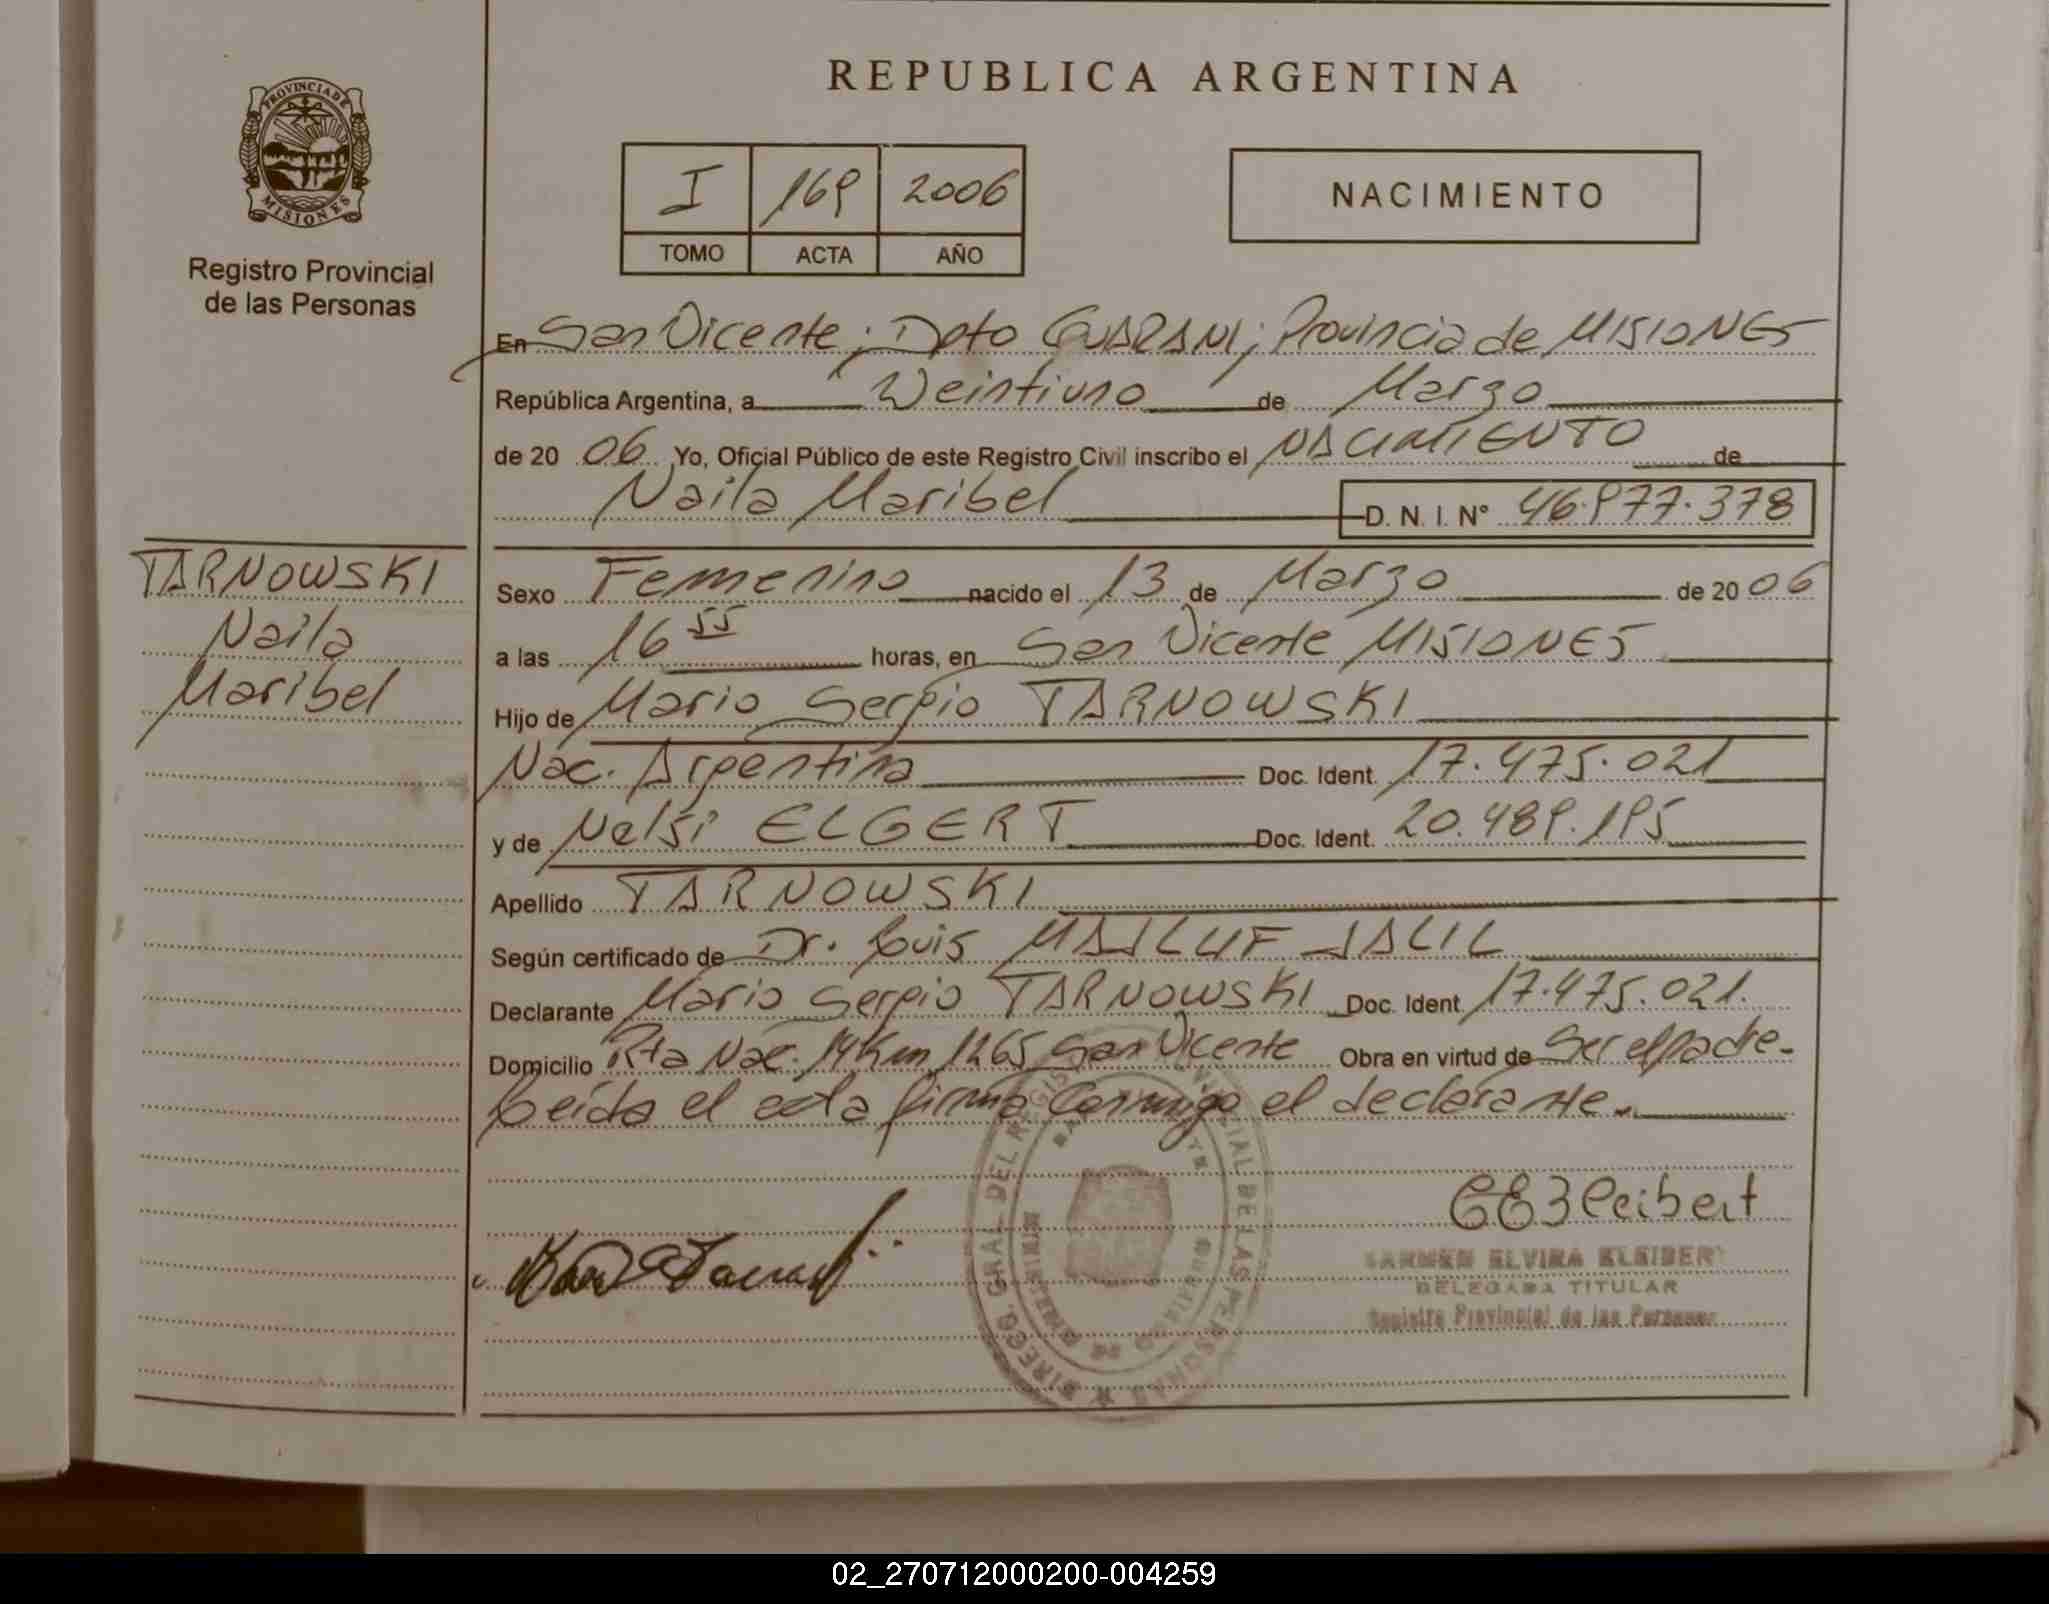 REPUBLICA ARGENTINA
PROVINCIA DE MISIONES
Registro Provincial
de las Personas
I 169 2006
TOMO ACTA AÑO
NACIMIENTO
En San Vicente; Dpto GUARANI; Provincia de MISIONES
República Argentina, a Veintiuno de Marzo
de 20 06 Yo, Oficial Público de este Registro Civil inscribo el NACIMIENTO de
Naila Maribel D. N. I. Nº 46.977.378
TARNOWSKI
Naila
Maribel
Sexo Femenino nacido el 13 de Marzo de 20 06
a las 16 55 horas, en San Vicente MISIONES
Hijo de Mario Sergio TARNOWSKI
Nac. Argentina Doc. Ident. 17.475.021
y de Nelsi ELGERT Doc. Ident. 20.489.195
Apellido TARNOWSKI
Según certificado de Dr. Luis MAJLUF JALIL
Declarante Mario Sergio TARNOWSKI Doc. Ident. 17.475.021.
Domicilio Rta Nac. 14 Km 1265 San Vicente Obra en virtud de Ser el padre-
Leída el acta firma Conmigo el declarante.
CARMEN ELVIRA KLEIBERT
DELEGADA TITULAR
Registro Provincial de las Personas
02_270712000200-004259